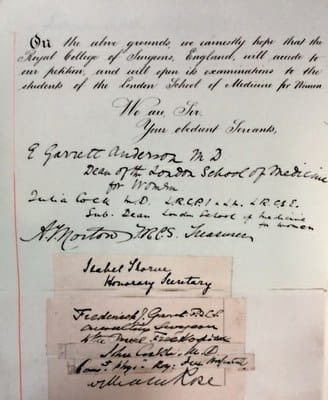 On the above grounds, we earnestly hope that the
Royal College of Surgeons, England, will accede to
our petition, and will open its examinations to the
students of the London School of Medicine for Women
We are, Sir,
Your obedient Servants,
E Garrett Anderson M D
Dean of the London School of Medicine
for Women
Julia Cock M.D. L.R.C.P.I
Sub. Dean London School of Medicine
for Women
A. T. Norton F.R.C.S. Treasurer
Isabel Thorne
Honorary Secretary
Frederick J. Gant F.R.C.S.
Consulting Surgeon
to the Royal Free Hospital
John Cockle M.D.
Physn Roy: Free Hospital
William Rose